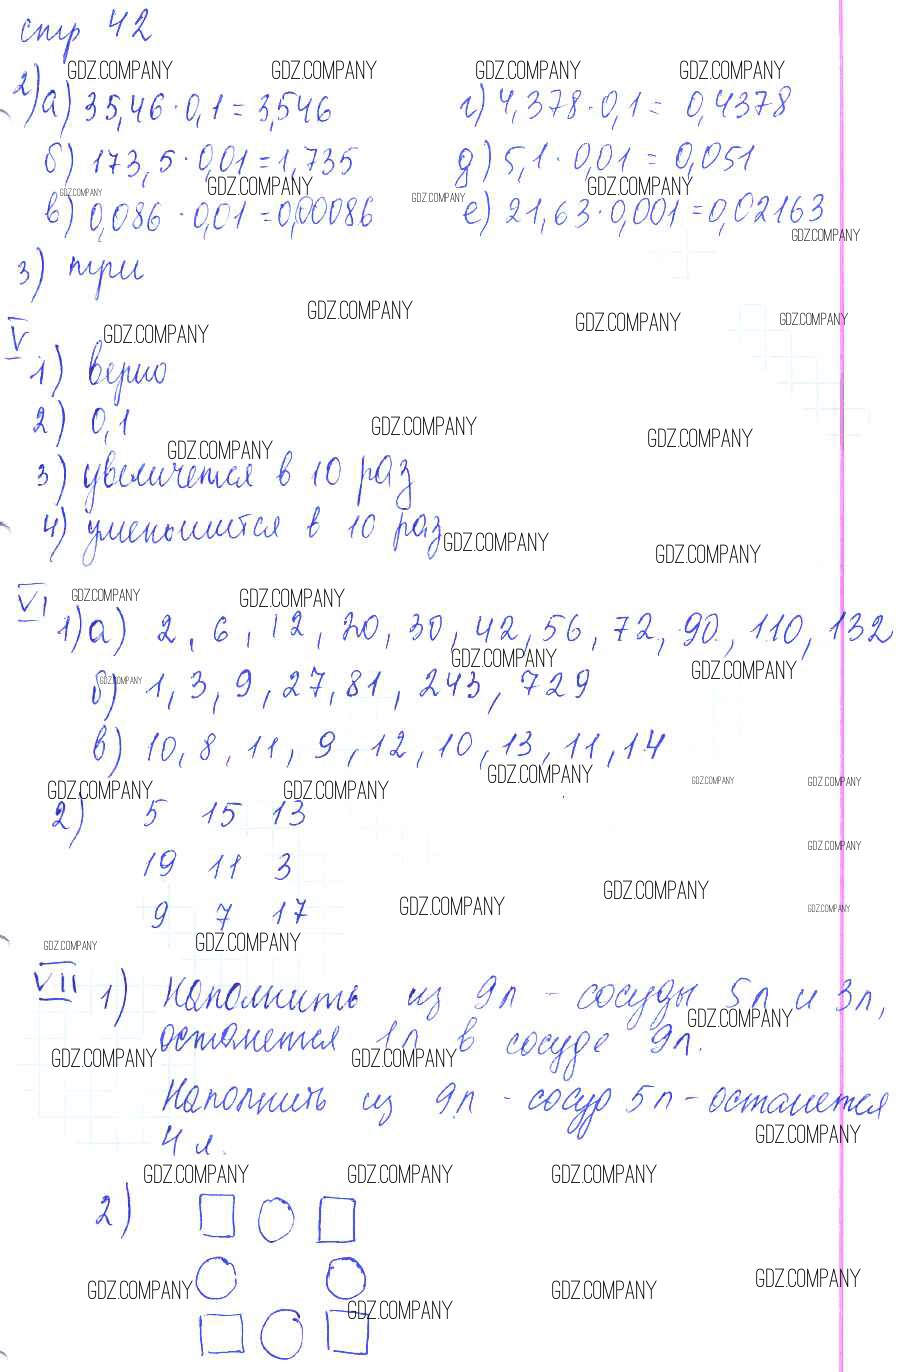 стр 42
GDZ.COMPANY GDZ.COMPANY GDZ.COMPANY GDZ.COMPANY
2) а) 35,46 · 0,1 = 3,546 г) 4,378 · 0,1 = 0,4378
б) 173,5 · 0,01 = 1,735 д) 5,1 · 0,01 = 0,051
GDZ.COMPANY GDZ.COMPANY GDZ.COMPANY GDZ.COMPANY
в) 0,086 · 0,01 = 0,00086 е) 21,63 · 0,001 = 0,02163
GDZ.COMPANY
3) три
GDZ.COMPANY GDZ.COMPANY GDZ.COMPANY GDZ.COMPANY
V
1) верно
2) 0,1
GDZ.COMPANY GDZ.COMPANY GDZ.COMPANY
3) увеличется в 10 раз
4) уменьшится в 10 раз
GDZ.COMPANY GDZ.COMPANY
GDZ.COMPANY GDZ.COMPANY
VI 1) а) 2, 6, 12, 20, 30, 42, 56, 72, 90, 110, 132
GDZ.COMPANY GDZ.COMPANY GDZ.COMPANY
б) 1, 3, 9, 27, 81, 243, 729
в) 10, 8, 11, 9, 12, 10, 13, 11, 14
GDZ.COMPANY GDZ.COMPANY GDZ.COMPANY GDZ.COMPANY GDZ.COMPANY
2) 5 15 13
GDZ.COMPANY
19 11 3
GDZ.COMPANY GDZ.COMPANY GDZ.COMPANY
9 7 17
GDZ.COMPANY GDZ.COMPANY
VII 1) Наполнить из 9л - сосуды 5л и 3л,
GDZ.COMPANY
останется 1л в сосуде 9л.
GDZ.COMPANY GDZ.COMPANY
Наполнить из 9л - сосуд 5л - останется
4 л.
GDZ.COMPANY
GDZ.COMPANY GDZ.COMPANY GDZ.COMPANY
2)
GDZ.COMPANY GDZ.COMPANY GDZ.COMPANY
GDZ.COMPANY